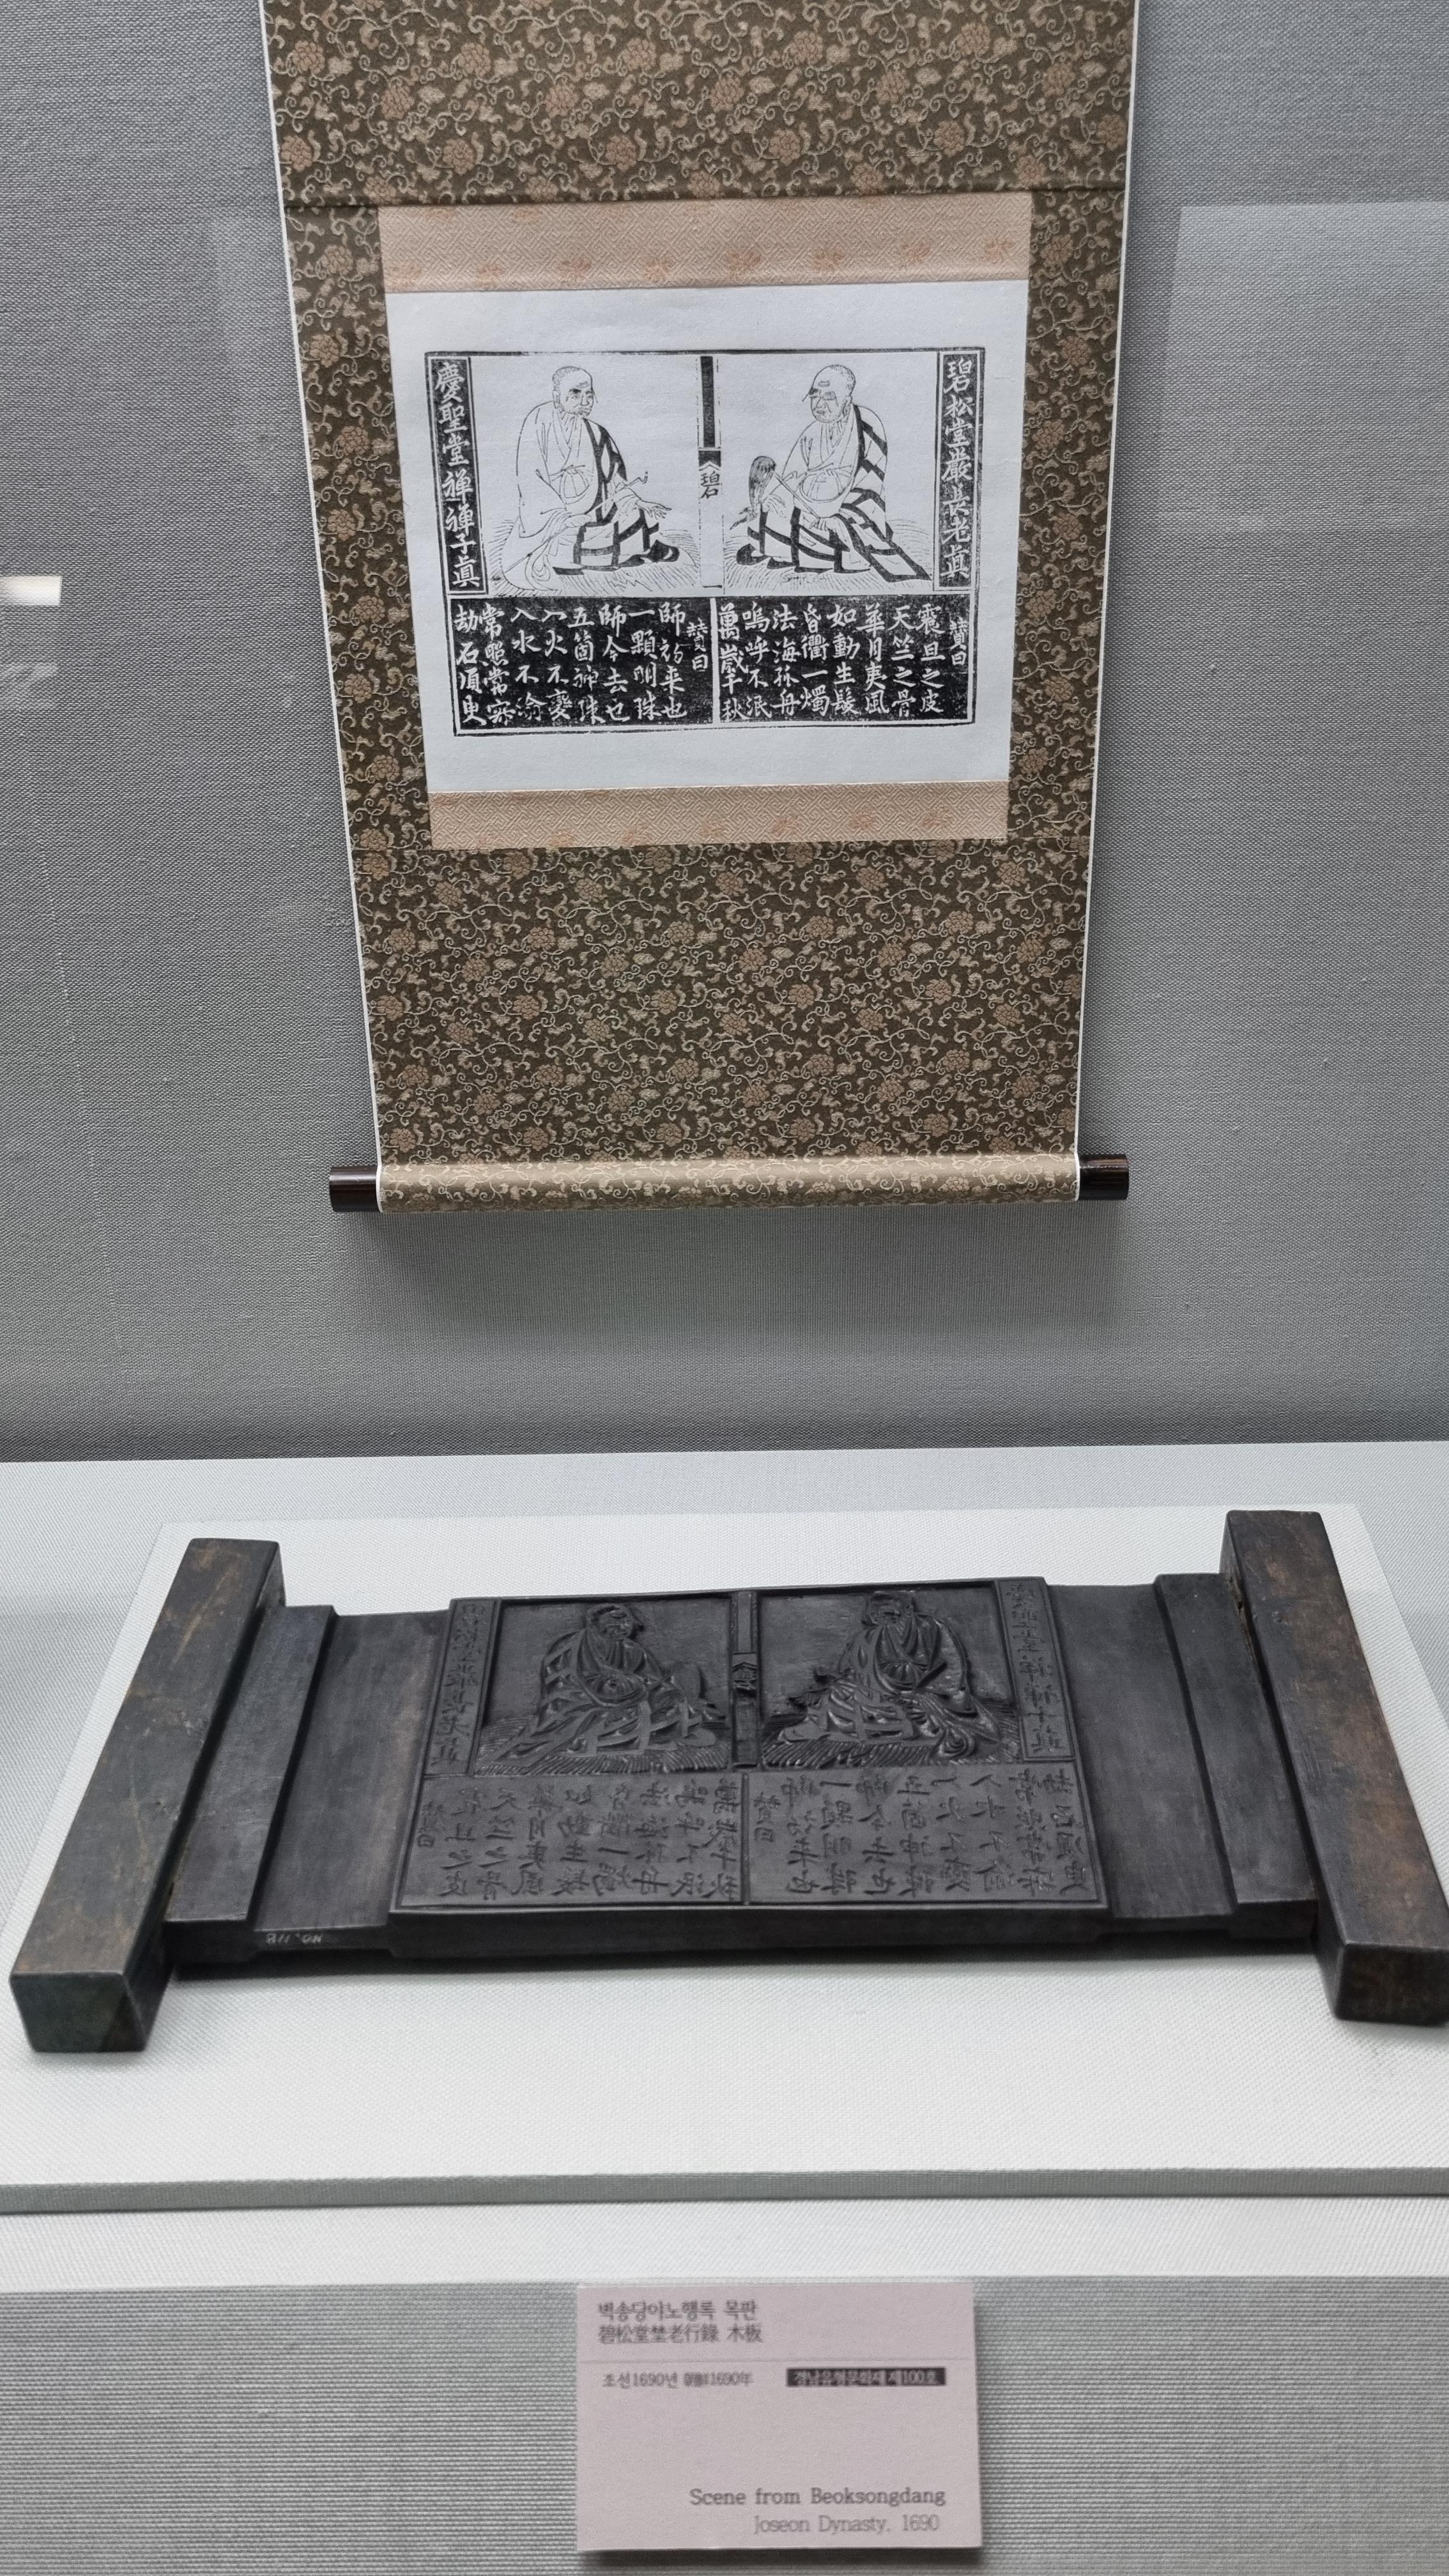 碧松堂嚴長老眞
讃曰
震旦之皮
天竺之骨
華月夷風
如動生髮
昏衢一燭
法海孤舟
嗚呼不泯
萬歲千秋
碧
慶聖堂禪禪子眞
讃曰
師初來也
一顆明珠
師今去也
五箇神珠
入火不變
入水不渝
常照常寂
劫石須臾
NO.118
벽송당야노행록 목판
碧松堂埜老行錄 木板
조선1690년 朝鮮1690年
경남유형문화재 제100호
Scene from Beoksongdang
Joseon Dynasty, 1690